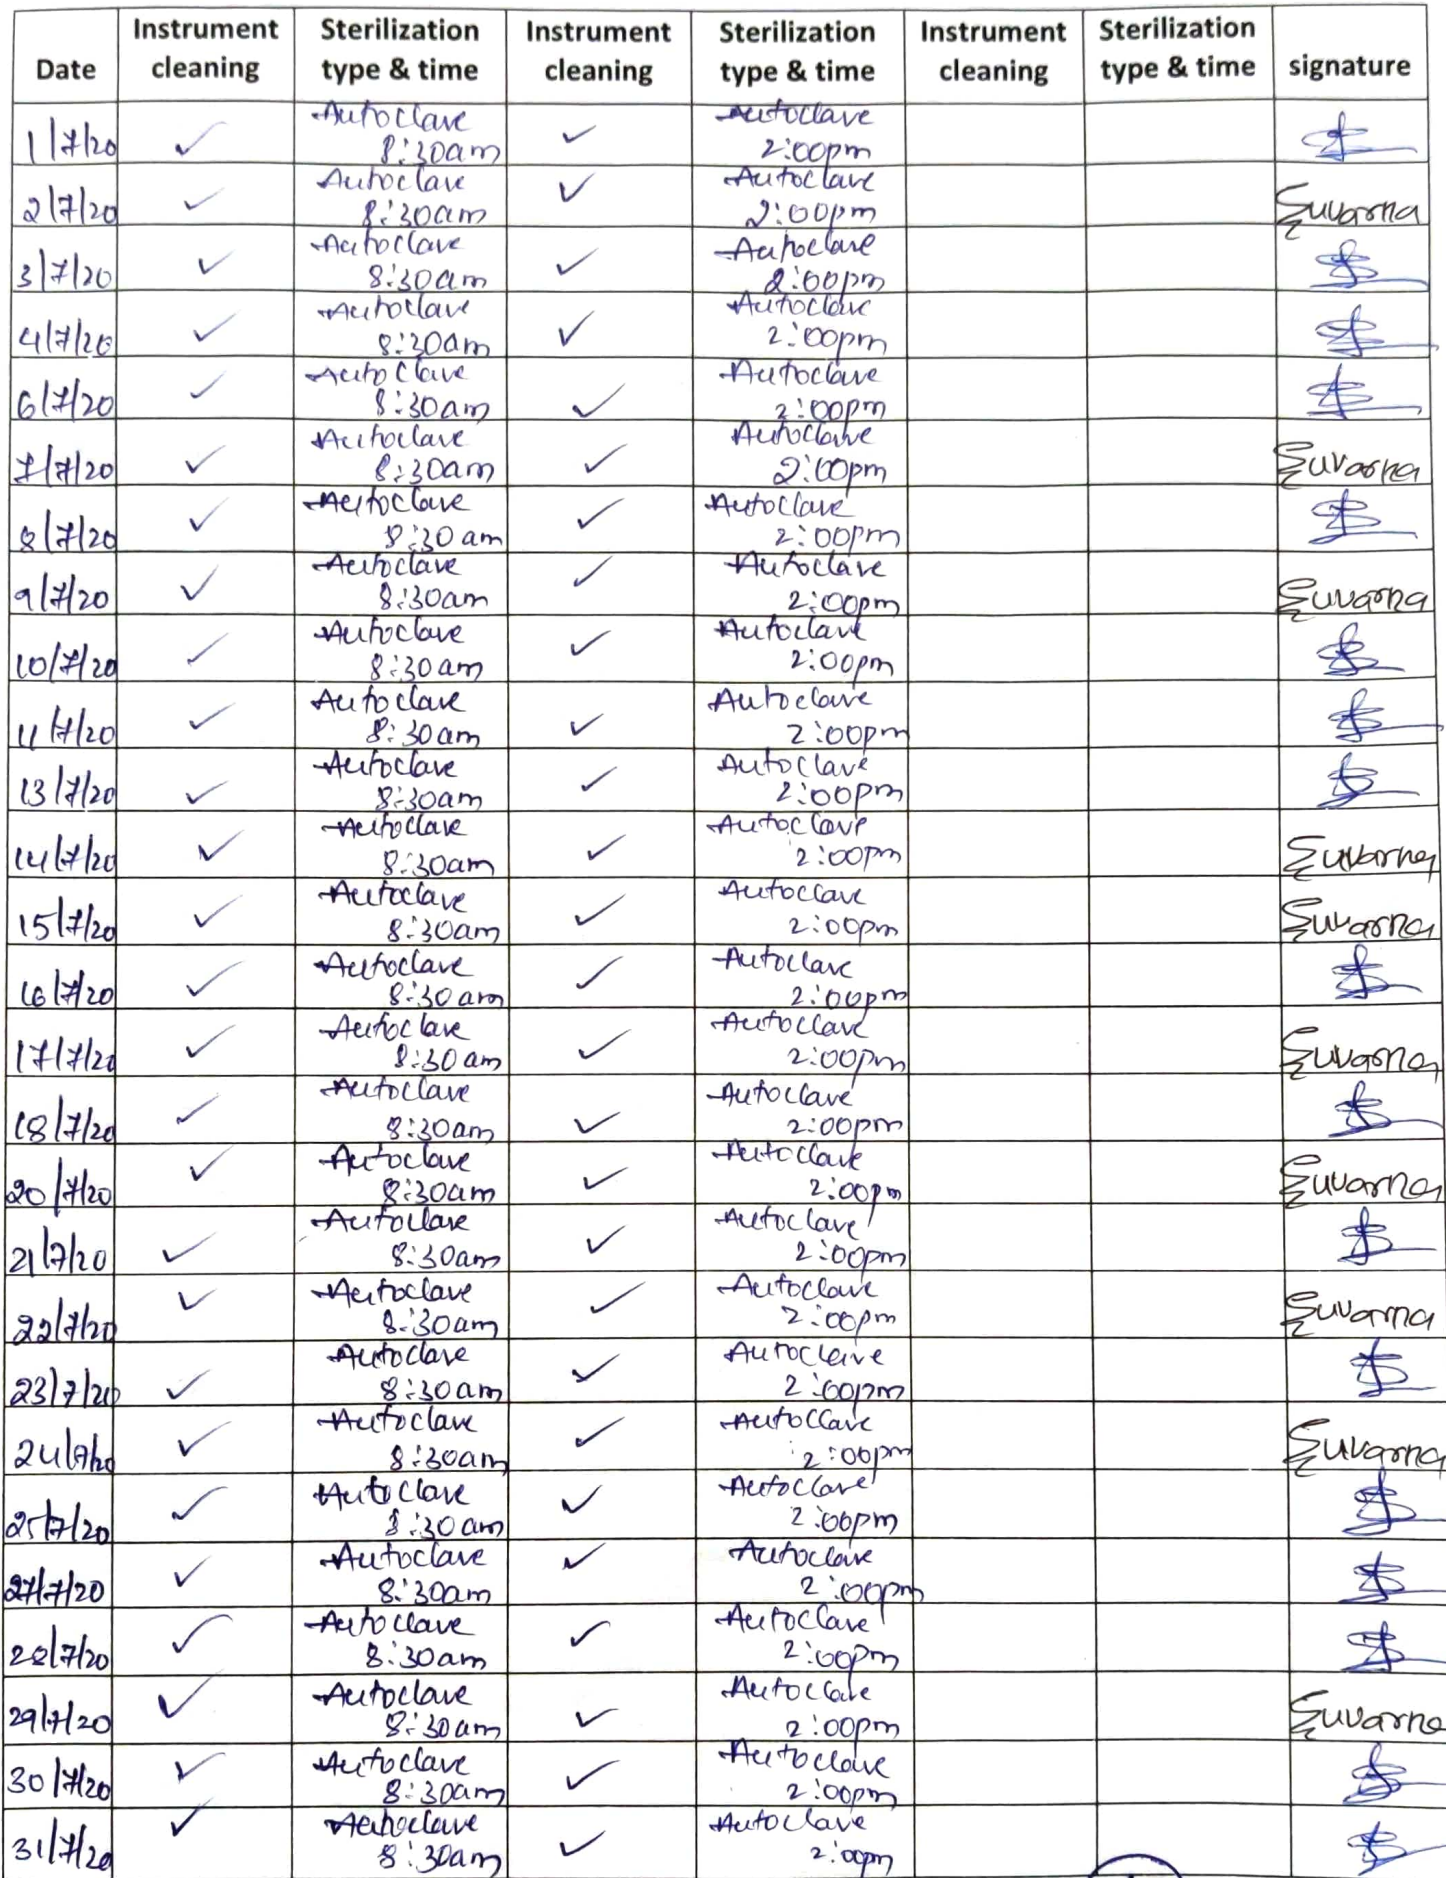 Date Instrument cleaning Sterilization type & time Instrument cleaning Sterilization type & time Instrument cleaning Sterilization type & time signature
1/7/20 ✓ Autoclave 8:30am ✓ Autoclave 2:00pm
2/7/20 ✓ Autoclave 8:30am ✓ Autoclave 2:00pm Suvarna
3/7/20 ✓ Autoclave 8:30am ✓ Autoclave 2:00pm
4/7/20 ✓ Autoclave 8:30am ✓ Autoclave 2:00pm
6/7/20 ✓ Autoclave 8:30am ✓ Autoclave 2:00pm
7/7/20 ✓ Autoclave 8:30am ✓ Autoclave 2:00pm Suvarna
8/7/20 ✓ Autoclave 8:30am ✓ Autoclave 2:00pm
9/7/20 ✓ Autoclave 8:30am ✓ Autoclave 2:00pm Suvarna
10/7/20 ✓ Autoclave 8:30am ✓ Autoclave 2:00pm
11/7/20 ✓ Autoclave 8:30am ✓ Autoclave 2:00pm
13/7/20 ✓ Autoclave 8:30am ✓ Autoclave 2:00pm
14/7/20 ✓ Autoclave 8:30am ✓ Autoclave 2:00pm Suvarna
15/7/20 ✓ Autoclave 8:30am ✓ Autoclave 2:00pm Suvarna
16/7/20 ✓ Autoclave 8:30am ✓ Autoclave 2:00pm
17/7/20 ✓ Autoclave 8:30am ✓ Autoclave 2:00pm Suvarna
18/7/20 ✓ Autoclave 8:30am ✓ Autoclave 2:00pm
20/7/20 ✓ Autoclave 8:30am ✓ Autoclave 2:00pm Suvarna
21/7/20 ✓ Autoclave 8:30am ✓ Autoclave 2:00pm
22/7/20 ✓ Autoclave 8:30am ✓ Autoclave 2:00pm Suvarna
23/7/20 ✓ Autoclave 8:30am ✓ Autoclave 2:00pm
24/7/20 ✓ Autoclave 8:30am ✓ Autoclave 2:00pm Suvarna
25/7/20 ✓ Autoclave 8:30am ✓ Autoclave 2:00pm
27/7/20 ✓ Autoclave 8:30am ✓ Autoclave 2:00pm
28/7/20 ✓ Autoclave 8:30am ✓ Autoclave 2:00pm
29/7/20 ✓ Autoclave 8:30am ✓ Autoclave 2:00pm Suvarna
30/7/20 ✓ Autoclave 8:30am ✓ Autoclave 2:00pm
31/7/20 ✓ Autoclave 8:30am ✓ Autoclave 2:00pm